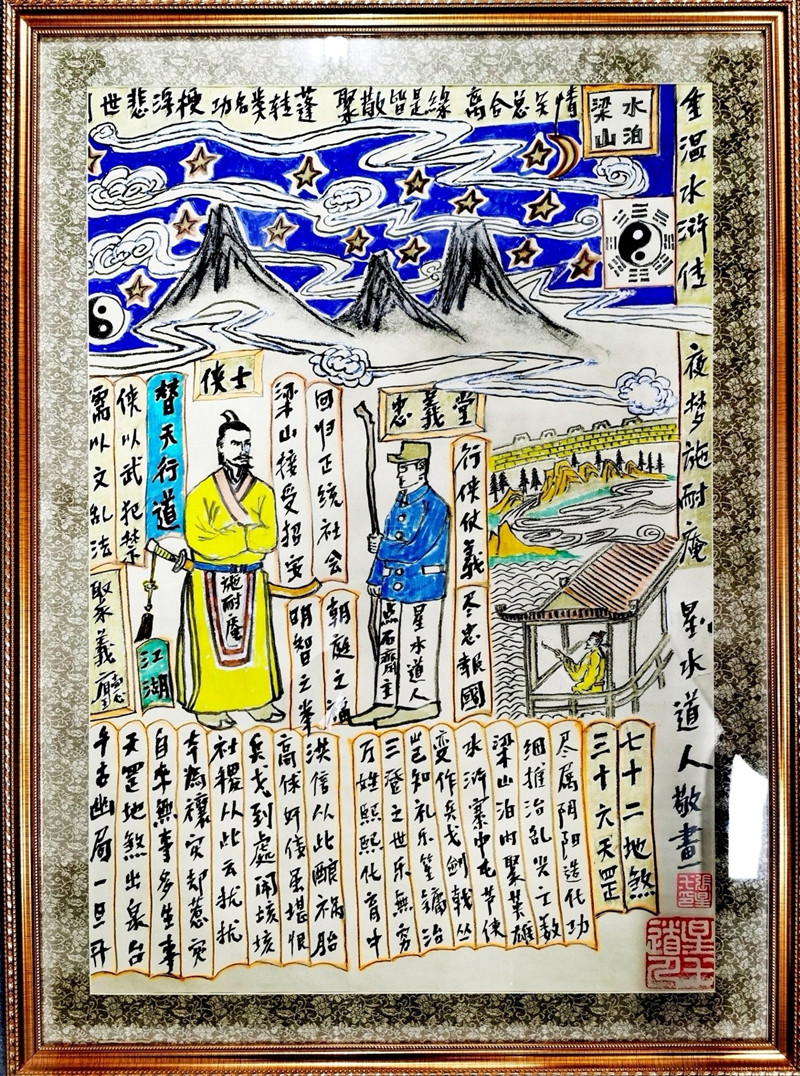 世悲浮梗 功名类转蓬 聚散皆是緣 离合总关情
水泊
梁山
重温水浒传 夜梦施耐庵 星水道人敬畫
侠士
忠義堂
儒以文乱法
侠以武犯禁
替天行道
聚義廳
江湖
施耐庵
梁山接受招安
明智之举
回归正统社会
朝庭之
点石齋主
星水道人
行侠仗義
尽忠報國
千古幽局一旦开
天罡地煞出泉台
自来無事多生事
本為禳灾却惹灾
社稷从此云扰扰
兵戈到處闹垓垓
高俅奸佞虽堪恨
洪信从此酿祸胎
万姓熙熙化育中
三登之世乐無穷
岂知礼乐笙镛治
变作兵戈剑戟丛
水浒寨中屯节侠
梁山泊内聚英雄
细推治乱兴亡数
尽属阴阳造化功
三十六天罡
七十二地煞